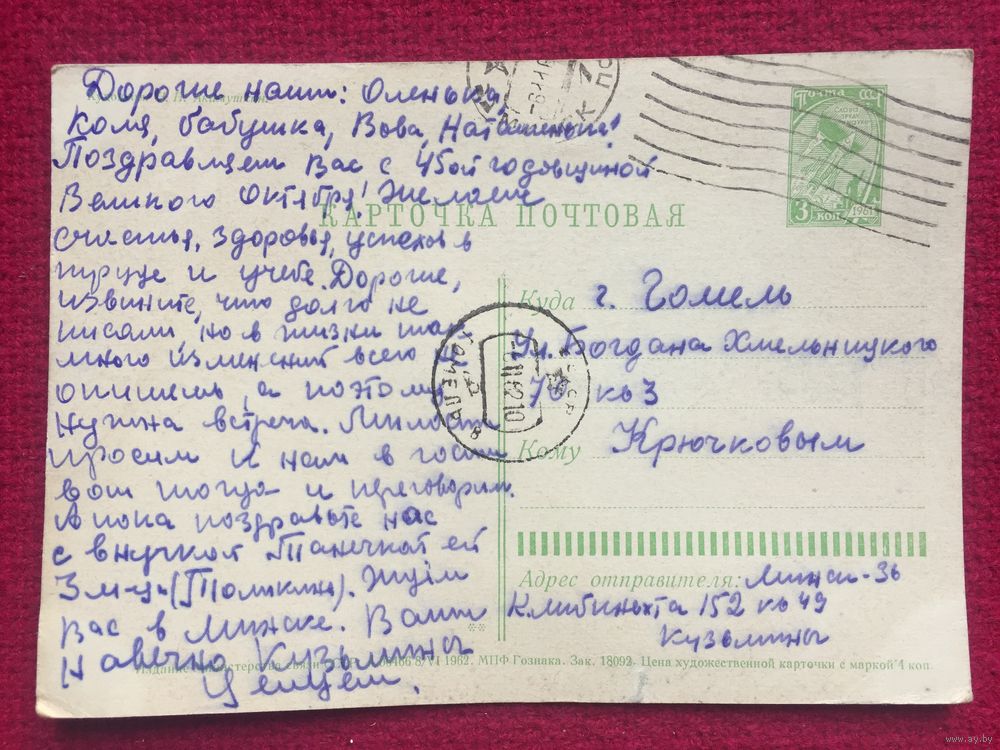 Дорогие наши: Оленька,
Коля, бабушка, Вова, Наташенька!
Поздравляем Вас с 45ой годовщиной
Великого Октября! Желаем
счастья, здоровья, успехов в
труде и учебе. Дорогие,
извините, что долго не
писали, но в жизни так
много изменений всего
опишешь, а поэтому
нужна встреча. Милости
просим к нам в гости
вот тогда и переговорим.
А пока поздравьте нас
с внучкой Танечкой ей
3 м-ца (Толикина). Ждём
Вас в Минске. Ваши
навечно Кузьмины
Целуем.
ПОЧТА СССР
3 КОП
1961
КАРТОЧКА ПОЧТОВАЯ
Куда г. Гомель
ул. Богдана Хмельницкого
кв 3
Кому Крючковым
ГОМЕЛЬ
Адрес отправителя: Минск-36
К. Либкнехта 152 кв 49
Кузьмины
Издание Министерства связи 8/VI 1962. МПФ Гознака. Зак. 18092. Цена художественной карточки с маркой 4 коп.
www.ay.by